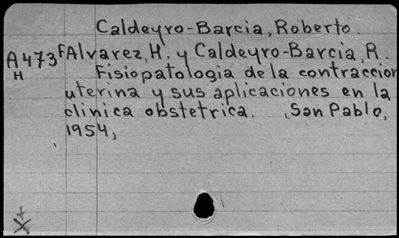 Caldeyro-Barcia, Roberto.
A473F Alvarez, H. y Caldeyro-Barcia, R.
H Fisiopatologia de la contraccion
uterina y sus aplicaciones en la
clinica obstetrica. San Pablo,
1954,